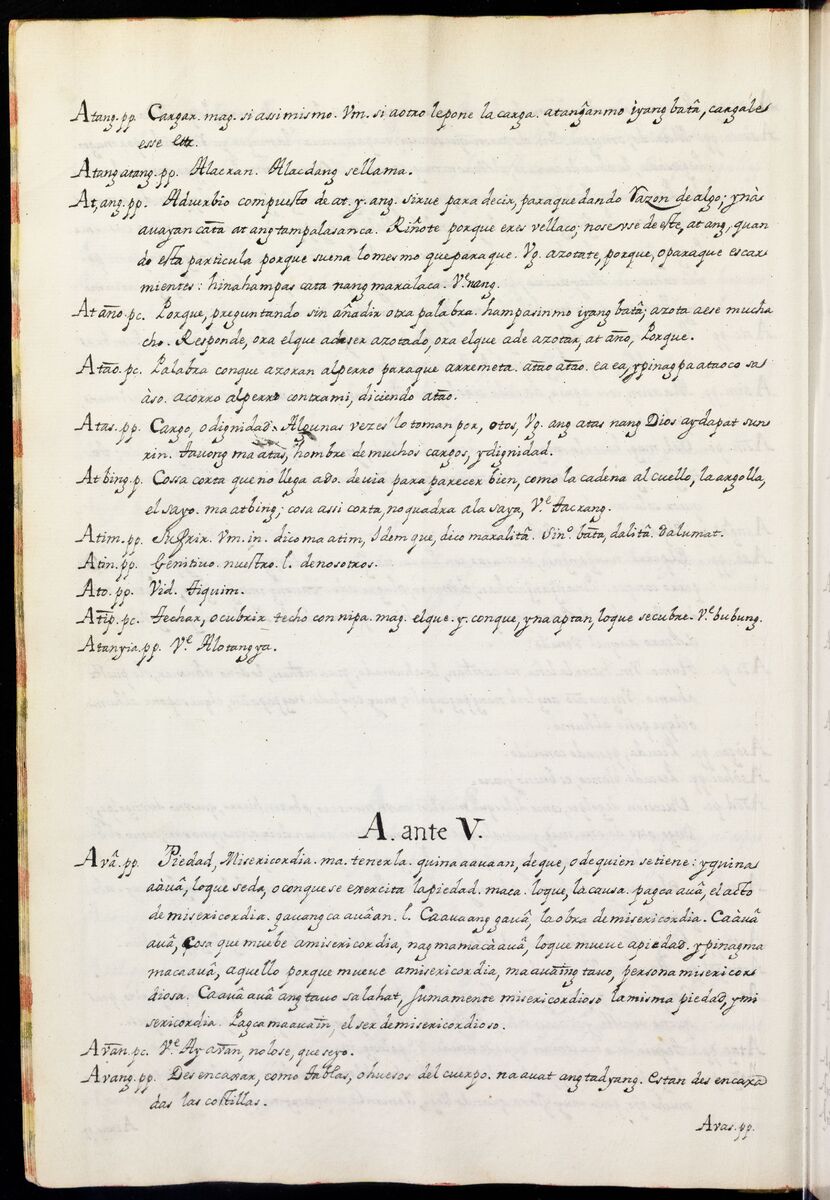 Atang.pp. Cargar. mag. si assi mismo. Vm. si a otro le pone la carga. atangãnmo iyang batã, cargales
esse etc.
Atang atang. pp. Alacran. Alacdang se llama.
At,ang. pp. Adverbio compuesto de at. y. ang. sirue para decir, para que dando razon de algo; ynàs
auayan catã at ang tampalasanca. Riñote porque eres vellaco; no se vse de este, at ang, quan
do esta particula porque suena lo mesmo que paraque. Vg. azotate, porque, o paraque escar
mientes: hinahampas cata nang maxalaca. Vᵉ nang.
At año. pc. Porque, preguntando sin añadir otra palabra. hampasinmo iyang batã; azota a ese mucha
cho. Responde, ora el que ade ser azotado, ora el que ade azotar, at año, Porque.
Atão. pc. Palabra conque azoran al perro paraque arremeta. atão atão. ea ea, ypinagpaataoco sa
àso. acorro al perro contra mi, diciendo atão.
Atas. pp. Cargo, o dignidad. Algunas vezes lo toman por, otos, Vg. ang atas nang Dios ay dapat sun
rin. tauong maatas, hombre de muchos cargos, y dignidad.
Atbing. p. Cossa corta que no llega ado. deuia para parecer bien, como la cadena al cuello, la argolla,
el sayo. maatbing; cosa assi corta, no quadra ala saya, Vᵉ tacxang.
Atim. pp. Sufrir. Vm. in. dico maatim, Idem que, dico maxalitã. Sinº. batã, dalitã. dalumat.
Atin. pp. Genitiuo. nuestro. l. de nosotros.
Ato. pp. Vid. tiquim.
Atip. pc. techar, o cubrir techo con nipa. mag. el que. y. conque, yna aptan, lo que se cubre. Vᵉ bubung.
Atanyia. pp. Vᵉ Alotangya.
A. ante V.
Avã. pp. Piedad, Misericordia. ma. tenerla. quina aauaan, de que, o de quien se tiene: y quina
aàuã, lo que se da, o conque se exercita la piedad. maca. loque, la causa. pagca auã, el acto
de misericordia. gauang ca auãan. l. Caauaang gauã, la obra de misericordia. Caàuã
auã, Cosa que muebe a misericordia, nagmamacàauã, lo que mueue apiedad. ypinagma
macaauã, aquello porque mueue a misericordia, maauaing tauo, persona misericor
diosa. Caauã auã ang tauo sa lahat, sumamente misericordioso la misma piedad, y mi
sericordia. Pagca maauain, el ser de misericordioso.
Avan. pc. Vᵉ Ay avan, no lose, que seyo.
Avang. pp. Des encaxar, como tablas, o huesos del cuerpo. na auat ang tadyang. Estan des encaxa
das las costillas.
Avas. pp.